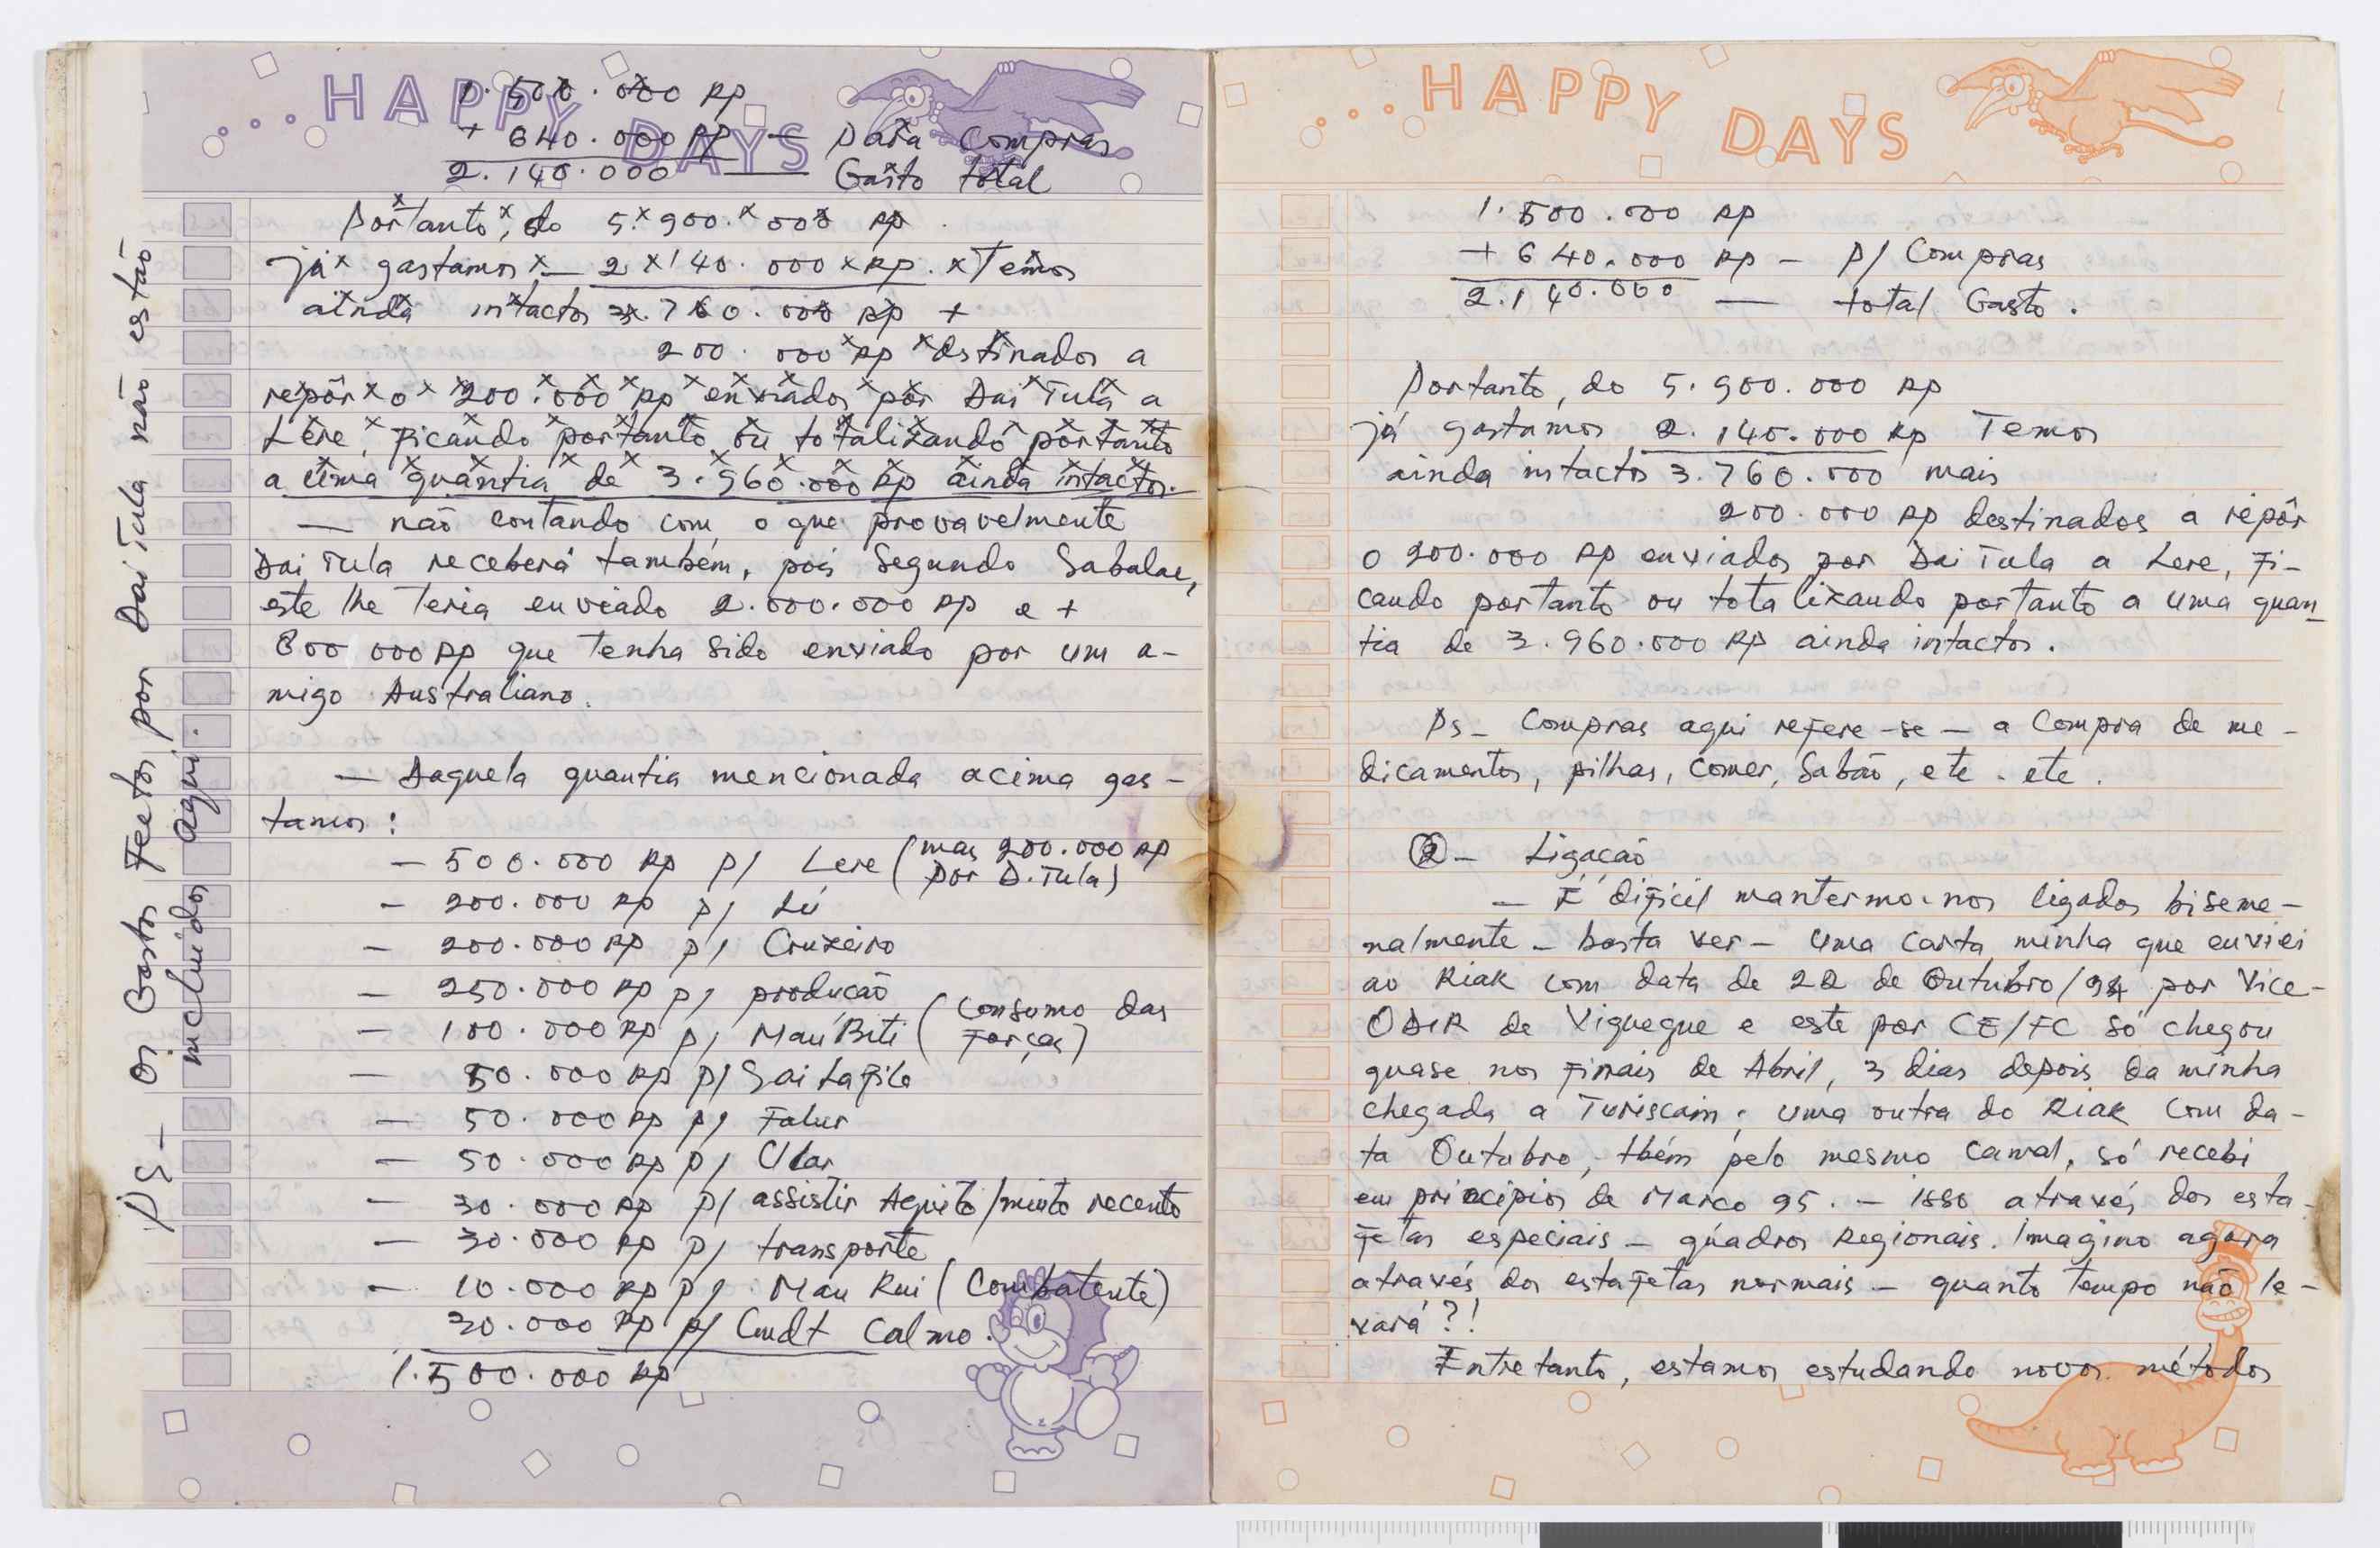 ...HAPPY DAYS
1.500.000 Rp
+ 640.000 Rp — Para Compras
2.140.000 — Gasto total
Portanto, do 5.900.000 Rp.
já gastamos — 2.140.000 Rp. Temos
ainda intactos 3.760.000 Rp +
200.000 Rp destinados a
repôr o 200.000 Rp enviados por Dai Tula a
Lere, ficando portanto ou totalizando portanto
a uma quantia de 3.960.000 Rp ainda intactos.
— não contando com o que provavelmente
Dai Tula receberá também, pois segundo Sabalae,
este lhe teria enviado 2.000.000 Rp e +
800 000 Rp que tenha sido enviado por um a-
migo Australiano.
— Daquela quantia mencionada acima gas-
tamos:
— 500.000 Rp p/ Lere (mas 200.000 Rp
por D.Tula)
— 200.000 Rp p/ Lú
— 200.000 Rp p/ Cruzeiro
— 250.000 Rp p/ produção
— 100.000 Rp p/ Mau Biti (Consumo das
Forças)
— 50.000 Rp p/ Sai Lafile
— 50.000 Rp p/ Falur
— 50.000 Rp p/ Ular
— 30.000 Rp p/ assistir Aquito/muito recente
— 30.000 Rp p/ transporte
— 10.000 Rp p/ Mau Rui (Combatente)
30.000 Rp p/ Cmdt Calmo.
1.500.000 Rp
PS — Os Gastos feitos por Dai Tula não estão
incluidos aqui.
...HAPPY DAYS
1.500.000 Rp
+ 640.000 Rp — p/ Compras
2.140.000 — total Gasto.
Portanto, do 5.900.000 Rp
já gastamos 2.140.000 Rp Temos
ainda intactos 3.760.000 mais
200.000 Rp destinados a repôr
o 200.000 Rp enviados por Dai Tula a Lere, fi-
cando portanto ou totalizando portanto a uma quan-
tia de 3.960.000 Rp ainda intactos.
Ps — Compras aqui refere-se — a Compra de me-
dicamentos, pilhas, comer, Sabão, etc. etc.
2 — Ligação
— É difícil mantermo-nos ligados biseme-
nalmente — basta ver — uma carta minha que enviei
ao Riak com data de 22 de Outubro/94 por Vice-
ODIR de Viqueque e este por CE/FC só chegou
quase nos finais de Abril, 3 dias depois da minha
chegada a Turiscain; uma outra do Riak com da-
ta Outubro, tbém pelo mesmo canal, só recebi
em principios de Março 95. — isso através dos esta-
fetas especiais — quadros Regionais. Imagino agora
através dos estafetas normais — quanto tempo não le-
vará?!
Entretanto, estamos estudando novos métodos